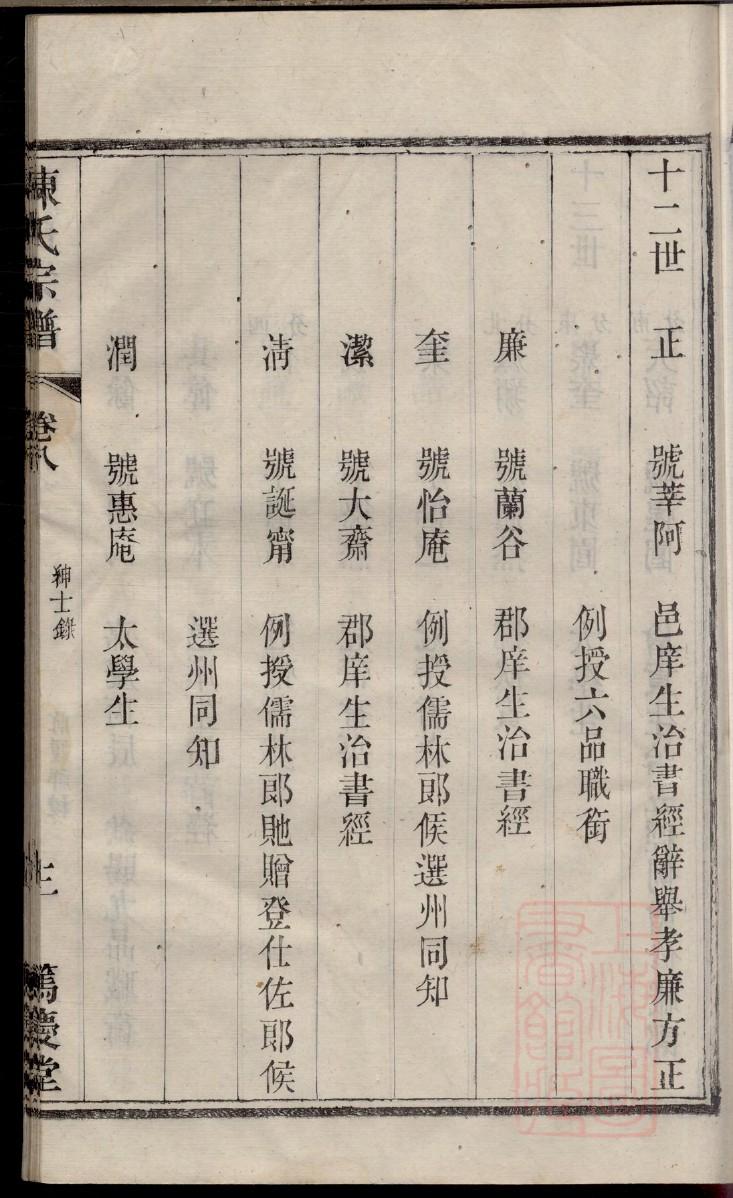 十二世 正 號莘阿 邑庠生治書經辭舉孝廉方正
例授六品職銜
廉 號蘭谷 郡庠生治書經
奎 號怡庵 例授儒林郎候選州同知
潔 號大齋 郡庠生治書經
清 號誕甯 例授儒林郎貤贈登仕佐郎候
選州同知
潤 號惠庵 太學生
陳氏宗譜 卷八 紳士錄 篤慶堂
上海圖書館藏